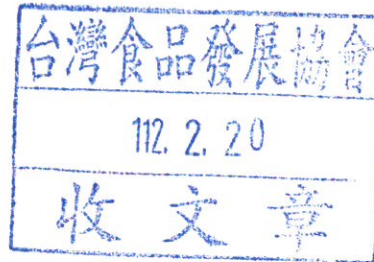 台灣食品發展協會
112. 2. 20
收文章